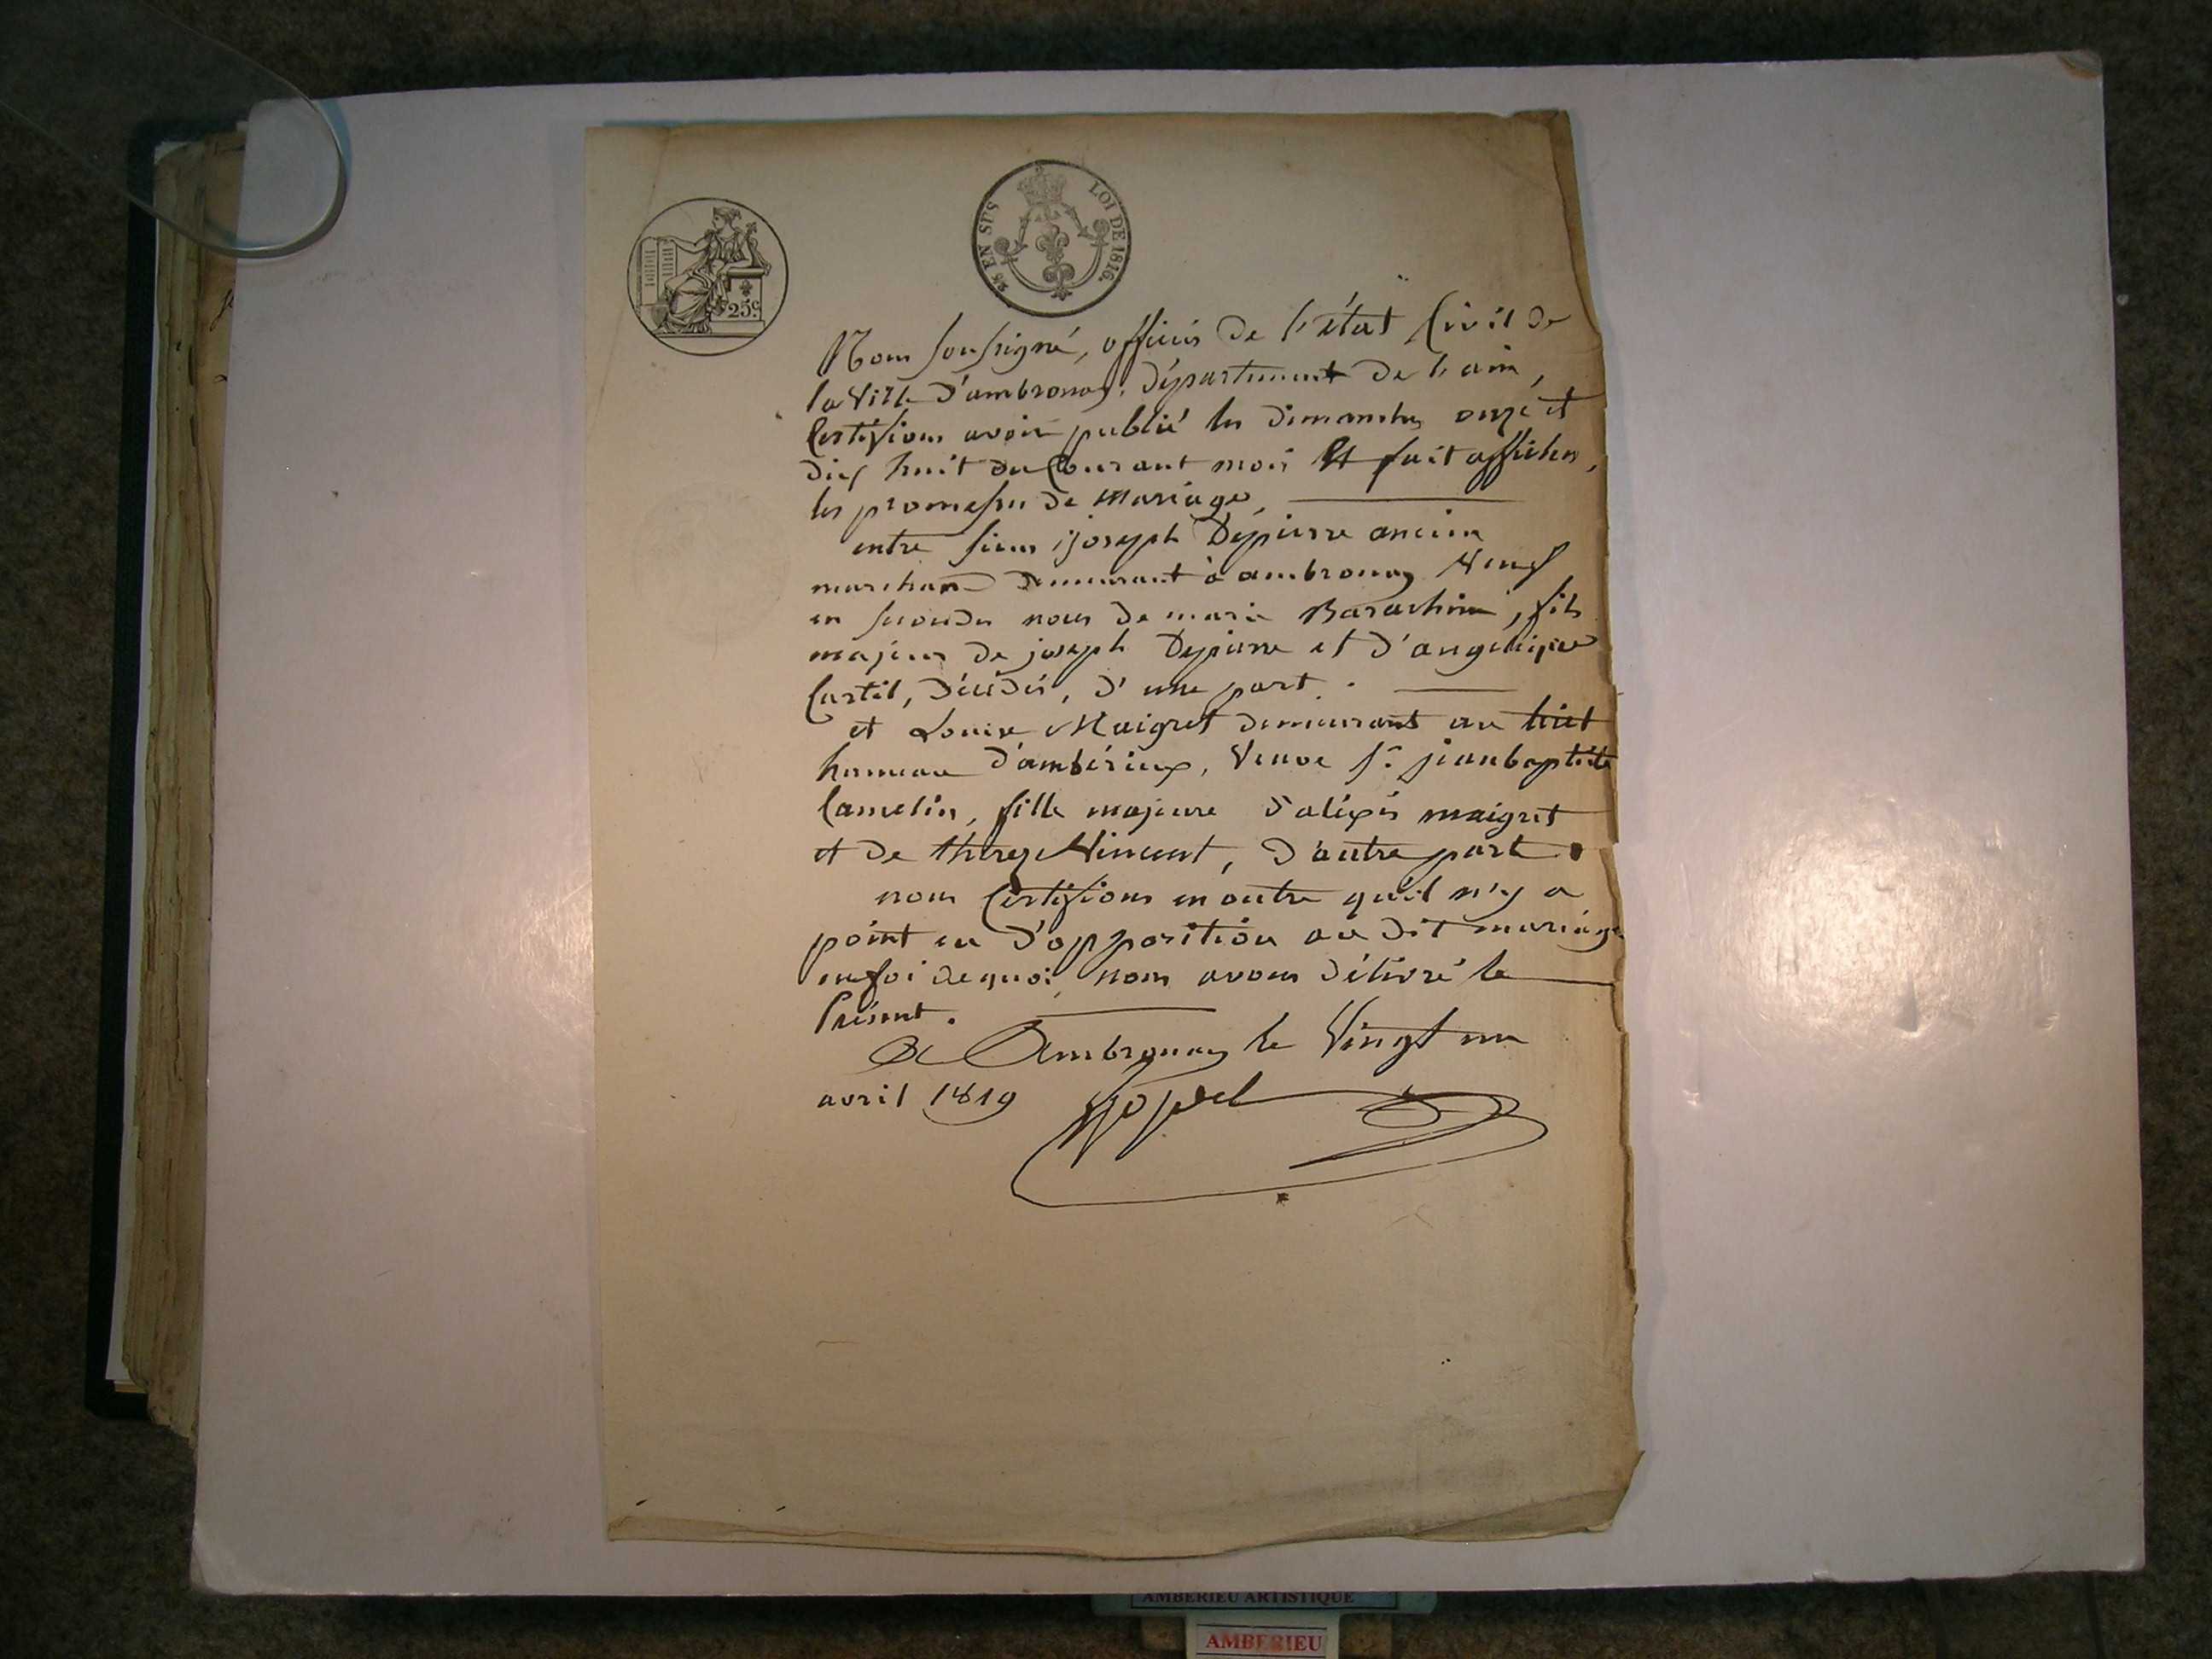 25c.
25c EN SUS LOI DE 1816.
Nous soussigné, officier de l'état Civil de
la Ville d'ambronay, département de l'ain,
Certifions avoir publié les dimanches onze et
dix huit du Courant mois et fait afficher,
les promesses de mariage,
entre sieur joseph Dépierre ancien
marchand demeurant à ambronay Veuf
en secondes noces de marie Barachine, fils
majeur de joseph Depierre et d'angelique
Castil, décédés, d'une part.
et Louise Maigret demeurant au tiret
hameau d'ambérieux, Veuve sr. jeanbaptiste
Camelin, fille majeure d'aléxis maigret
et de threze Vincent, d'autre part
nous Certifions en outre qu'il n'y a
point eu d'opposition au dit mariage
en foi de quoi, nous avons délivré le
Présent.
A Ambronay le Vingt un
avril 1819
AMBERIEU ARTISTIQUE
AMBERIEU